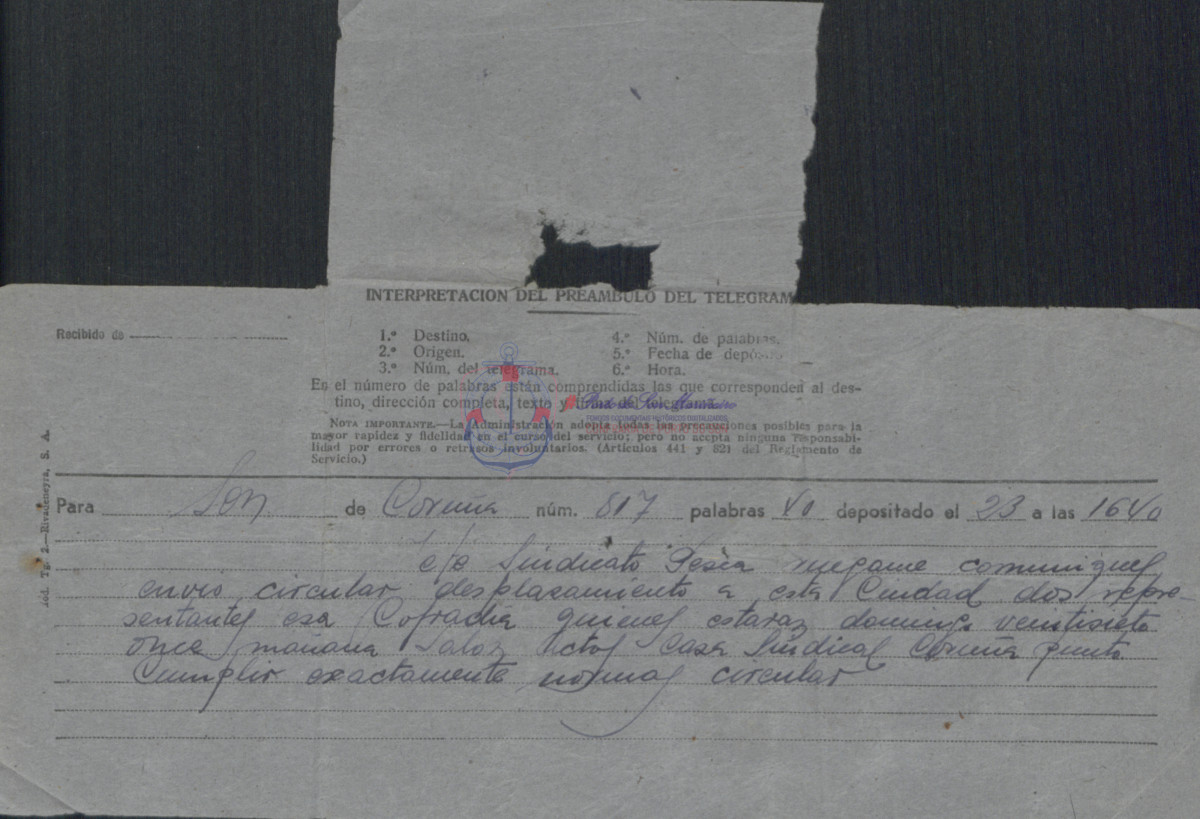 INTERPRETACION DEL PREAMBULO DEL TELEGRAM
Recibido de
1.º Destino.
2.º Origen.
3.º Núm. del telegrama.
4.º Núm. de palabras.
5.º Fecha de depósito
6.º Hora.
En el número de palabras están comprendidas las que corresponden al des-
tino, dirección completa, texto y firma del telegrama.
NOTA IMPORTANTE.—La Administración adopta todas las precauciones posibles para la
mayor rapidez y fidelidad en el curso del servicio; pero no acepta ninguna responsabi-
lidad por errores o retrasos involuntarios. (Artículos 441 y 821 del Reglamento de
Servicio.)
Mód. Tg. 2.—Rivadeneyra, S. A.
Para Son de Coruña núm. 817 palabras 40 depositado el 23 a las 1640
Sindicato Pesca ruegame comunique
envio circular desplasamiento a esta Ciudad dos repre
sentantes esa Cofradia quienes estaraz domingo ventisiete
once mañana Saloz Actos Casa Sindical Coruña punto
Cumplir exactamente normas circular